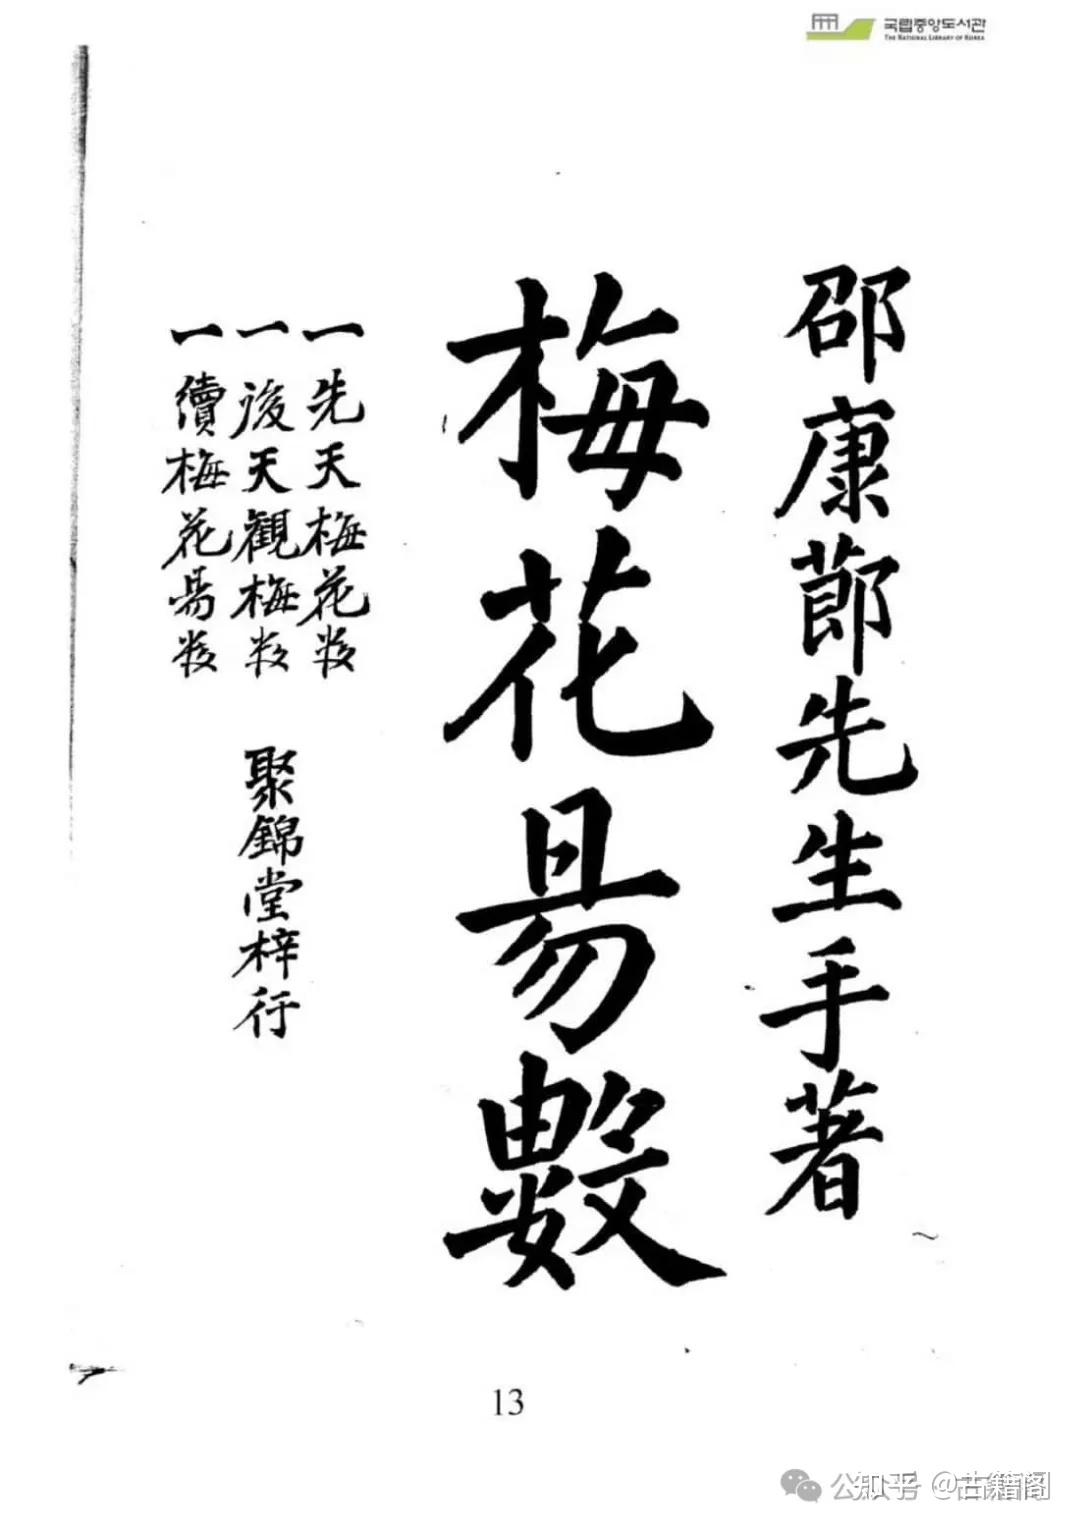 국립중앙도서관
THE NATIONAL LIBRARY OF KOREA
邵康節先生手著
梅花易數
一先天梅花数
一後天觀梅数
一續梅花易数
聚錦堂梓行
13
知乎 @古籍阁